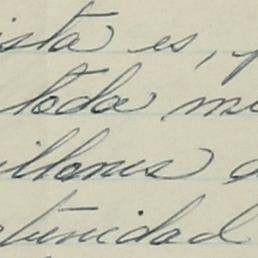 ista es, p
toda mi
illones d
tunidad